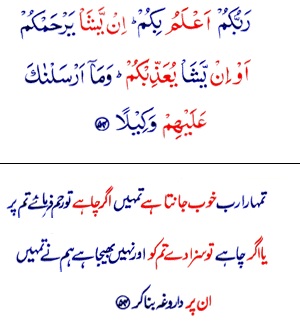 رَبُّكُمْ اَعْلَمُ بِكُمْ ؕ اِنْ يَّشَاْ يَرْحَمْكُمْ
اَوْ اِنْ يَّشَاْ يُعَذِّبْكُمْ ؕ وَمَاۤ اَرْسَلْنٰكَ
عَلَيْهِمْ وَكِيْلًا ۵۴
تمہارا رب خوب جانتا ہے تمہیں اگر چاہے تو رحم فرمائے تم پر
یا اگر چاہے تو سزا دے تم کو اور نہیں بھیجا ہے ہم نے تمہیں
ان پر داروغہ بنا کر ۵۴